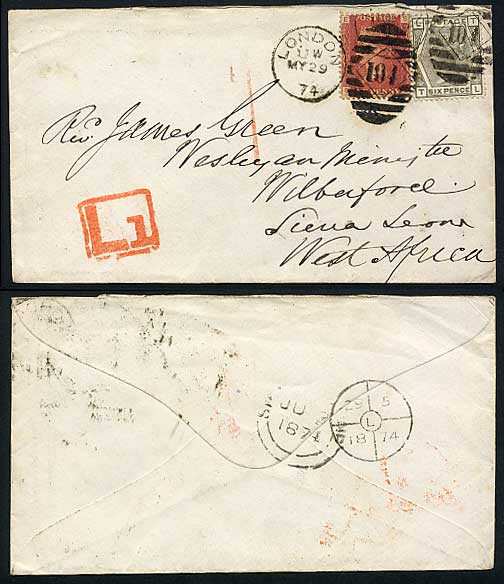 LONDON
U W
MY 29
74
POSTAGE
PENNY
104
POSTAGE
SIX PENCE
T L
104
Rev. James Green
Wesleyan Minister
Wilberforce
Siera Leone
West Africa
L1
JU
1874
29 5
L
18 74